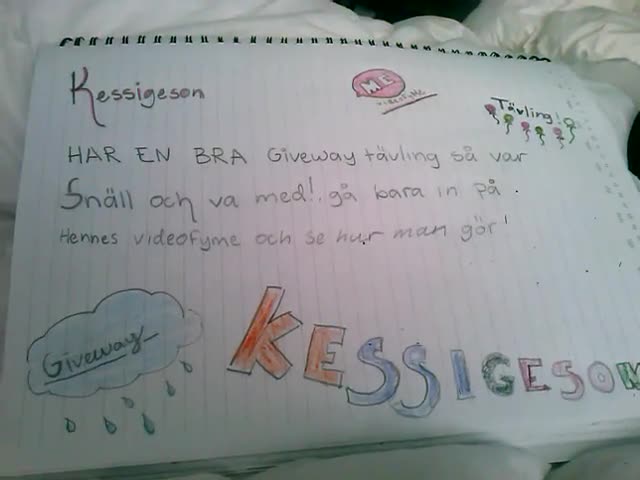 Kessigeson
ME
videofyMe
Tävling!
HAR EN BRA Giveway tävling så var
Snäll och va med! gå bara in på.
Hennes videofyme och se hur man gör!
Giveway
KESSIGESON